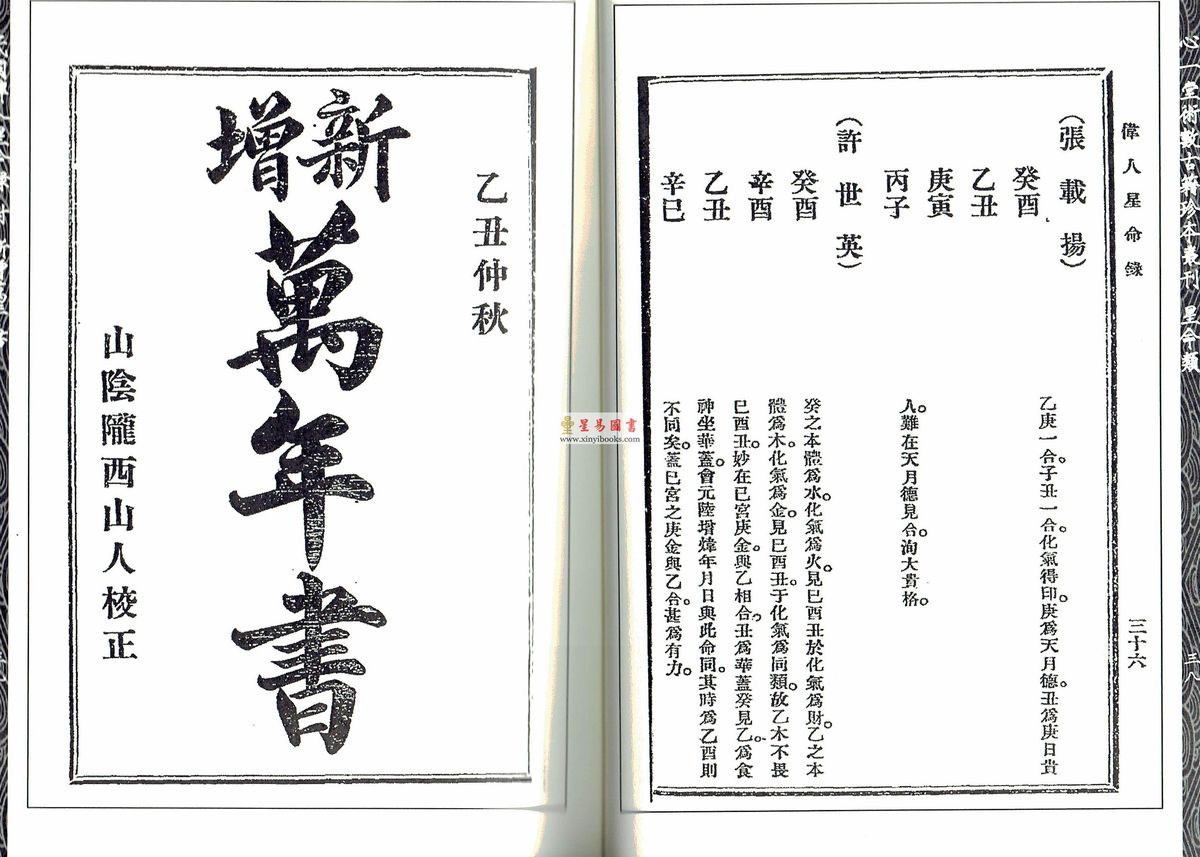 偉人星命錄
三十六
（張載揚）
癸酉
乙丑
庚寅
丙子
乙庚一合。子丑一合。化氣得印。庚為天月德。丑為庚日貴
人。難在天月德見合。洵大貴格。
（許世英）
癸酉
辛酉
乙丑
辛巳
癸之本體為水。化氣為火。見巳酉丑於化氣為財。乙之本
體為木。化氣為金。見巳酉丑。于化氣為同類。故乙木不畏
巳酉丑。妙在巳宮庚金。與乙相合。丑為華蓋。癸見乙為食
神坐華蓋。會元陸增煒年月日與此命同。其時為乙酉則
不同矣。蓋巳宮之庚金與乙合。甚為有力。
三八
乙丑仲秋
新增
萬年書
山陰隴西山人校正
星易圖書
www.xinyibooks.com